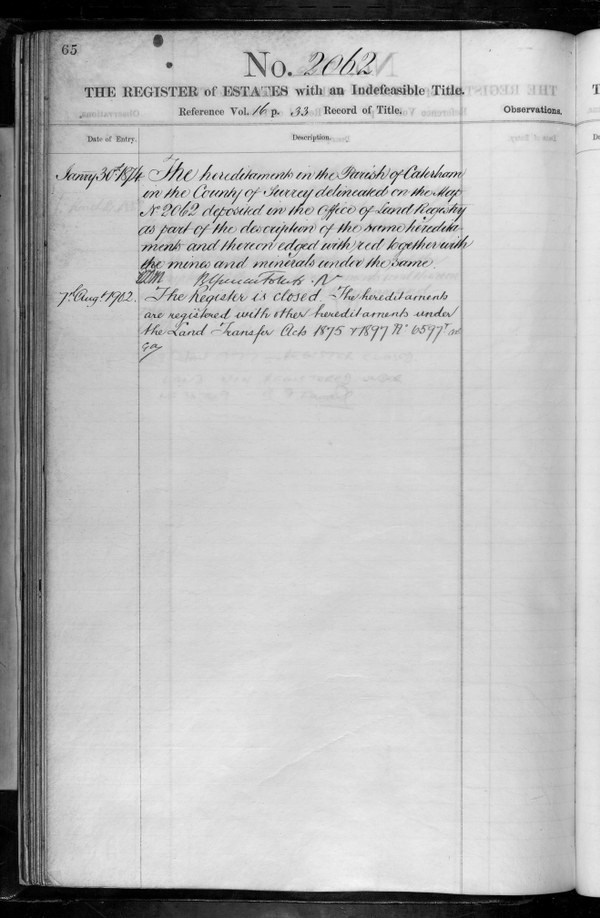 65
No. 2062
THE REGISTER of ESTATES with an Indefeasible Title.
Reference Vol. 16 p. 33 Record of Title.
Observations.
Date of Entry.
Description.
Jany 30th 1874 The hereditaments in the Parish of Caterham
in the County of Surrey delineated on the Map
No 2062 deposited in the Office of Land Registry
as part of the description of the same heredita-
ments and thereon edged with red together with
the mines and minerals under the same.
7th Augt 1902. The Register is closed. The hereditaments
are registered with other hereditaments under
the Land Transfer Acts 1875 & 1897 No 6597